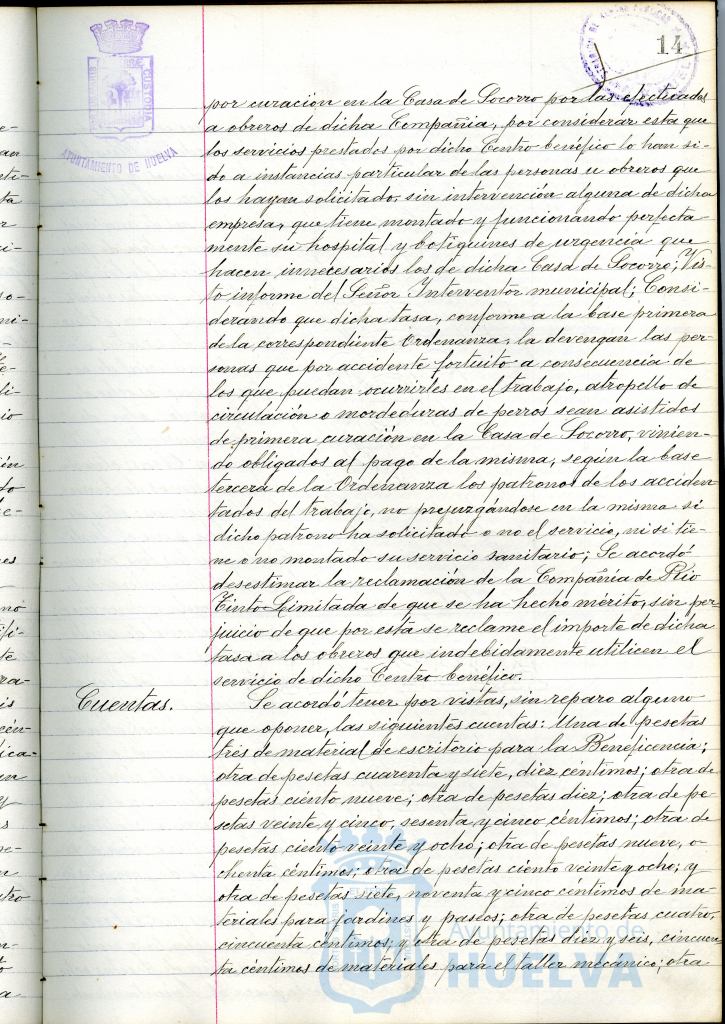 14
AYUNTAMIENTO DE HUELVA
por curación en la Casa de Socorro por las efectuadas
a obreros de dicha Compañia, por considerar esta que
los servicios prestados por dicho Centro benéfico lo han si-
do a instancias particular de las personas u obreros que
los hayan solicitado, sin intervención alguna de dicha
empresa, que tiene montado y funcionando perfecta
mente su hospital y botiquines de urgencia que
hacen innecesarios los de dicha Casa de Socorro; Vis-
to informe del Señor Interventor municipal; Consi-
derando que dicha tasa, conforme a la base primera
de la correspondiente Ordenanza, la devengan las per-
sonas que por accidente fortuito a consecuencia de
los que puedan ocurrirles en el trabajo, atropello de
circulación o mordeduras de perros sean asistidos
de primera curación en la Casa de Socorro, vinien-
do obligados al pago de la misma, según la base
tercera de la Ordenanza los patronos de los acciden-
tados del trabajo, no prejuzgándose en la misma si
dicho patrono ha solicitado o no el servicio, ni si tie-
ne o no montado su servicio sanitario; Se acordó
desestimar la reclamación de la Compañía de Rio
Tinto Limitada de que se ha hecho mérito, sin per
juicio de que por esta se reclame el importe de dicha
tasa a los obreros que indebidamente utilicen el
servicio de dicho Centro benéfico.
Cuentas.
Se acordó tener por vistas, sin reparo alguno
que oponer, las siguientes cuentas: Una de pesetas
tres de material de escritorio para la Beneficencia;
otra de pesetas cuarenta y siete, diez céntimos; otra de
pesetas ciento nueve; otra de pesetas diez; otra de pe-
setas veinte y cinco, sesenta y cinco céntimos; otra de
pesetas ciento veinte y ocho; otra de pesetas nueve, o-
chenta céntimos; otra de pesetas ciento veinte y ocho; y
otra de pesetas siete, noventa y cinco céntimos de ma-
teriales para jardines y paseos; otra de pesetas cuatro,
cincuenta céntimos; y otra de pesetas diez y seis, cincuen
ta céntimos de materiales para el taller mecánico; otra
Ayuntamiento de
HUELVA